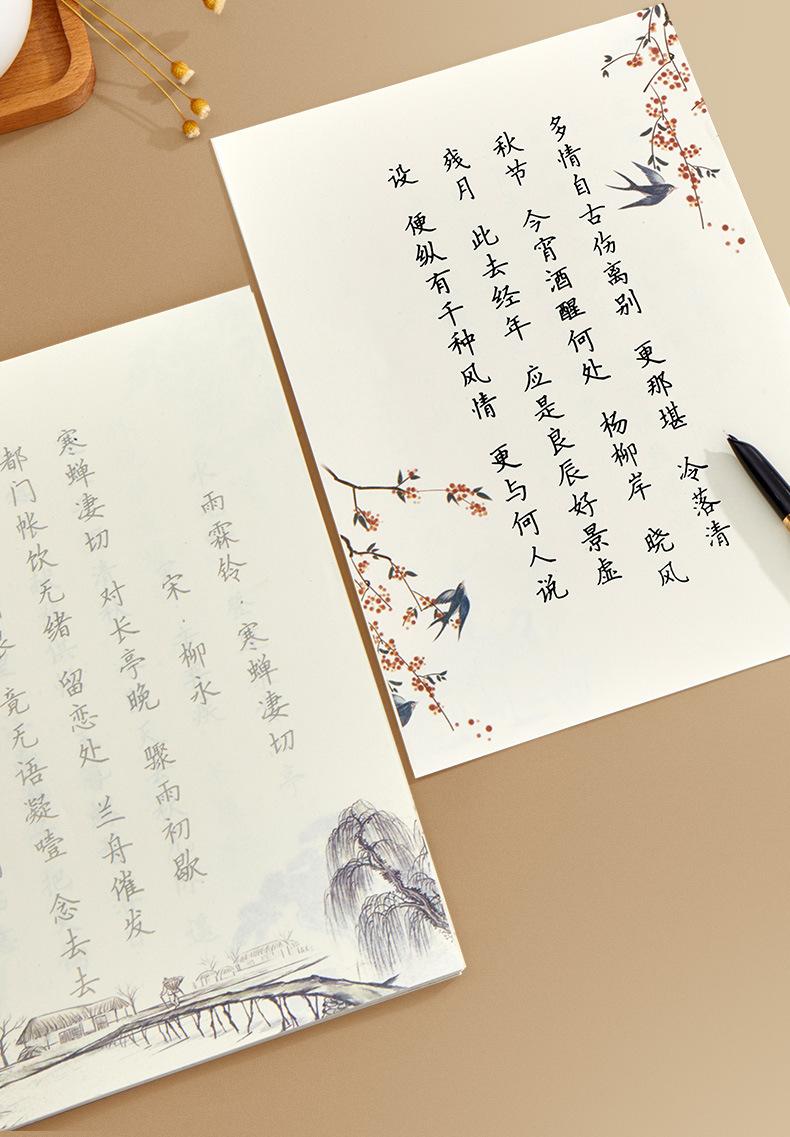 雨霖铃·寒蝉凄切
宋·柳永
寒蝉凄切 对长亭晚 骤雨初歇
都门帐饮无绪 留恋处 兰舟催发
竟无语凝噎 念去去
多情自古伤离别 更那堪 冷落清
秋节 今宵酒醒何处 杨柳岸 晓风
残月 此去经年 应是良辰好景虚
设 便纵有千种风情 更与何人说